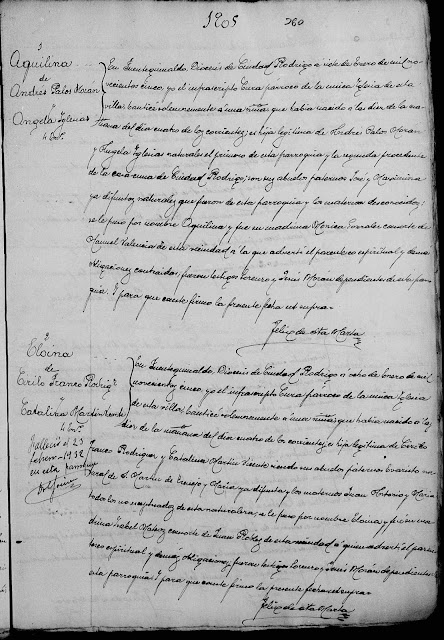 1905
260
3
Aquilina
de
Andrés Palos Moran
y
Angela Iglesias
4 En.
En Fuenteguinaldo, Diócesis de Ciudad Rodrigo a siete de Enero de mil no-
vecientos cinco, yo el infrascripto Cura párroco de la única Iglesia de esta
villa, bauticé solemnemente a una niña que había nacido a las diez de la ma-
ñana del día cuatro de los corrientes; es hija legítima de Andres Palos Moran
y Angela Iglesias naturales el primero de esta parroquia y la segunda procedente
de la casa cuna de Ciudad Rodrigo; son sus abuelos paternos José y Maximina
ya difuntos, naturales que fueron de esta parroquia y los maternos desconocidos;
se le puso por nombre Aquilina y fue su madrina Monica Gonzalez consorte de
Manuel Valencia de esta vecindad a la que advertí el parentesco espiritual y demas
obligaciones contraidas, fueron testigos Lorenzo y Jesús Morán dependientes de esta parro-
quia. Y para que conste firmo la presente fecha ut supra.
Felix de sta Marta
Eloina
de
Franco Rodrigz
y
Catalina Martin Vicente
4 En.
Falleció el 23
febrero 1932
en esta parroquia
En Fuenteguinaldo, Diócesis de Ciudad Rodrigo a ocho de Enero de mil
novecientos cinco, yo el infrascripto Cura párroco de la única Iglesia
de esta villa, bauticé solemnemente a una niña que había nacido a las
de la mañana del día cuatro de los corrientes; es hija legítima de
Franco Rodriguez y Catalina Martin Vicente siendo sus abuelos paternos Evaristo
de S. Martin de Trevejo y ya difunta y los maternos Juan Antonio y Maria
todos los no expresados de esta naturaleza; se le puso por nombre Eloina y fue su ma-
drina Isabel consorte de Juan de esta vecindad a quien advertí el paren-
tesco espiritual y demas obligaciones, fueron testigos Lorenzo y Jesús Morán dependientes de
esta parroquia. Y para que conste firmo la presente fecha ut supra.
Felix de sta Marta